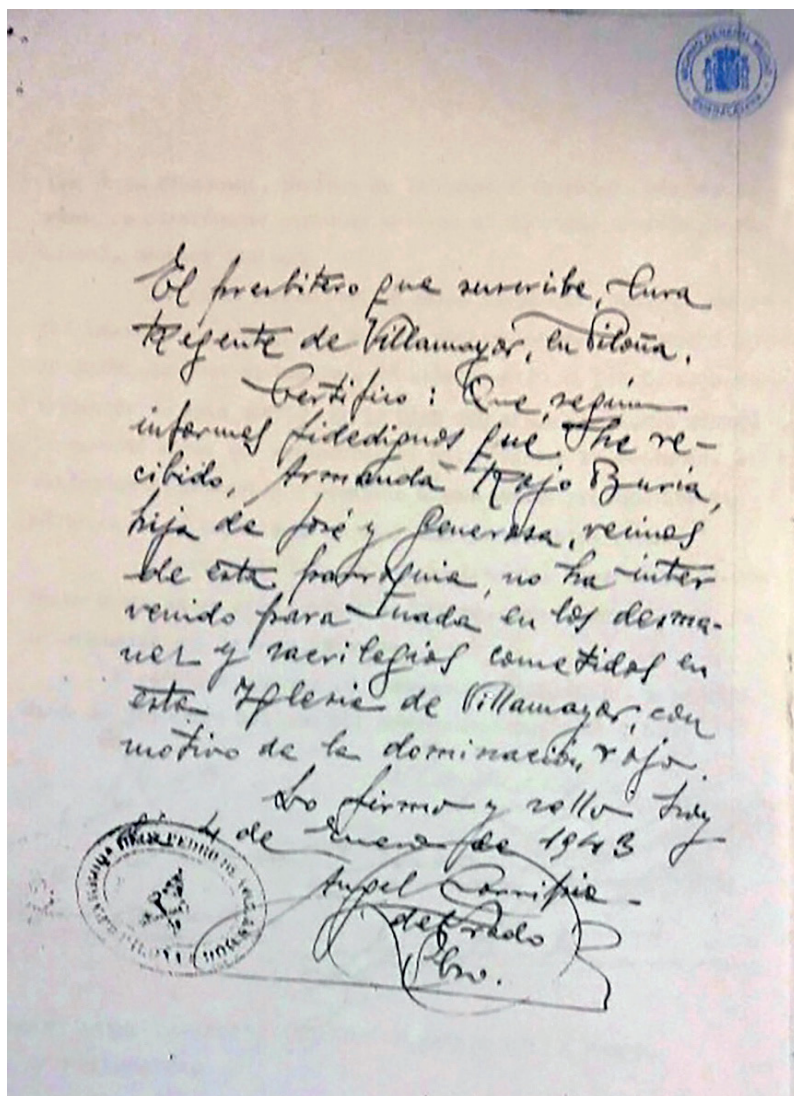 ARCHIVO GENERAL MILITAR
GUADALAJARA
El presbitero que suscribe, Cura
Regente de Villamayor, en Piloña.
Certifico: Que, según
informes fidedignos que he re-
cibido, Armanda Rojo Buria,
hija de José y Generosa, vecinos
de esta parroquia, no ha inter
venido para nada en los desma-
nes y sacrilegios cometidos en
esta Iglesia de Villamayor, con
motivo de la dominación roja.
Lo firmo y sello hoy
día 4 de Enero de 1943
Angel
del Prado
Pbro.
PARROQUIA DE SAN PEDRO DE VILLAMAYOR